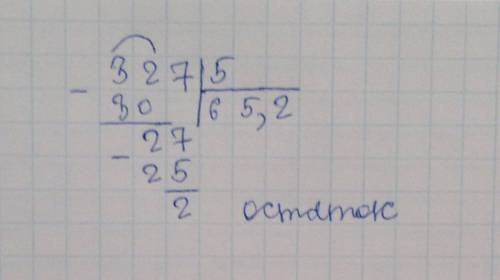 - 327 5
30 65,2
- 27
25
2 остаток